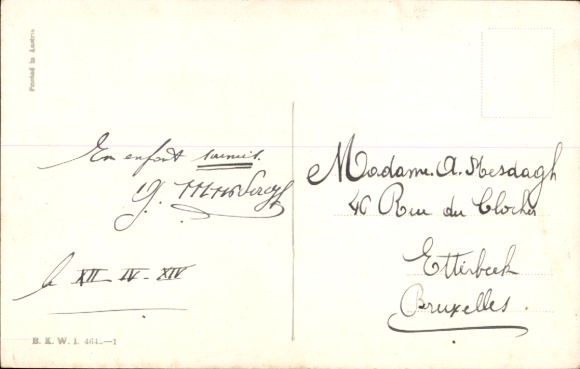 Printed in Austria
En enfant soumis.
le XII - IV - XIV
B. K. W. I. 464 - 1
Madame. A. Mesdagh
46 Rue du Clocher
Etterbeek
Bruxelles.